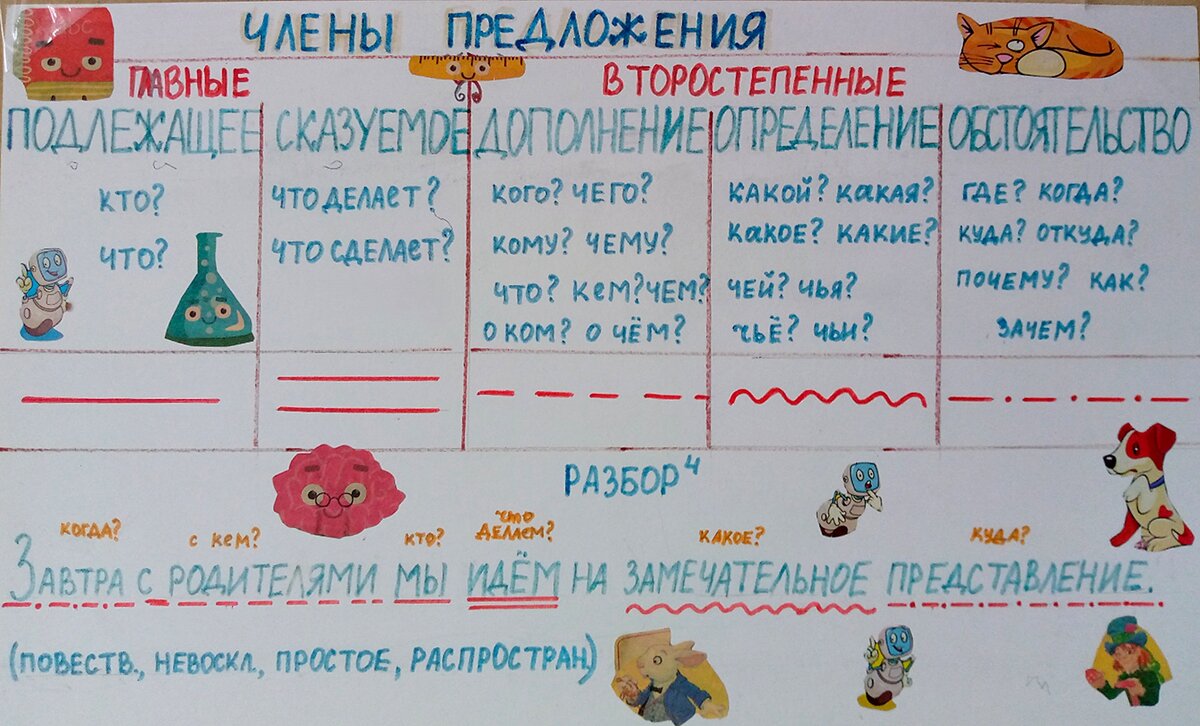 ЧЛЕНЫ ПРЕДЛОЖЕНИЯ
ГЛАВНЫЕ ВТОРОСТЕПЕННЫЕ
ПОДЛЕЖАЩЕЕ СКАЗУЕМОЕ ДОПОЛНЕНИЕ ОПРЕДЕЛЕНИЕ ОБСТОЯТЕЛЬСТВО
КТО? ЧТО ДЕЛАЕТ? КОГО? ЧЕГО? КАКОЙ? КАКАЯ? ГДЕ? КОГДА?
ЧТО? ЧТО СДЕЛАЕТ? КОМУ? ЧЕМУ? КАКОЕ? КАКИЕ? КУДА? ОТКУДА?
ЧТО? КЕМ? ЧЕМ? ЧЕЙ? ЧЬЯ? ПОЧЕМУ? КАК?
О КОМ? О ЧЁМ? ЧЬЁ? ЧЬИ? ЗАЧЕМ?
РАЗБОР⁴
КОГДА? С КЕМ? КТО? ЧТО ДЕЛАЕМ? КАКОЕ? КУДА?
ЗАВТРА С РОДИТЕЛЯМИ МЫ ИДЁМ НА ЗАМЕЧАТЕЛЬНОЕ ПРЕДСТАВЛЕНИЕ.
(ПОВЕСТВ., НЕВОСКЛ., ПРОСТОЕ, РАСПРОСТРАН.)